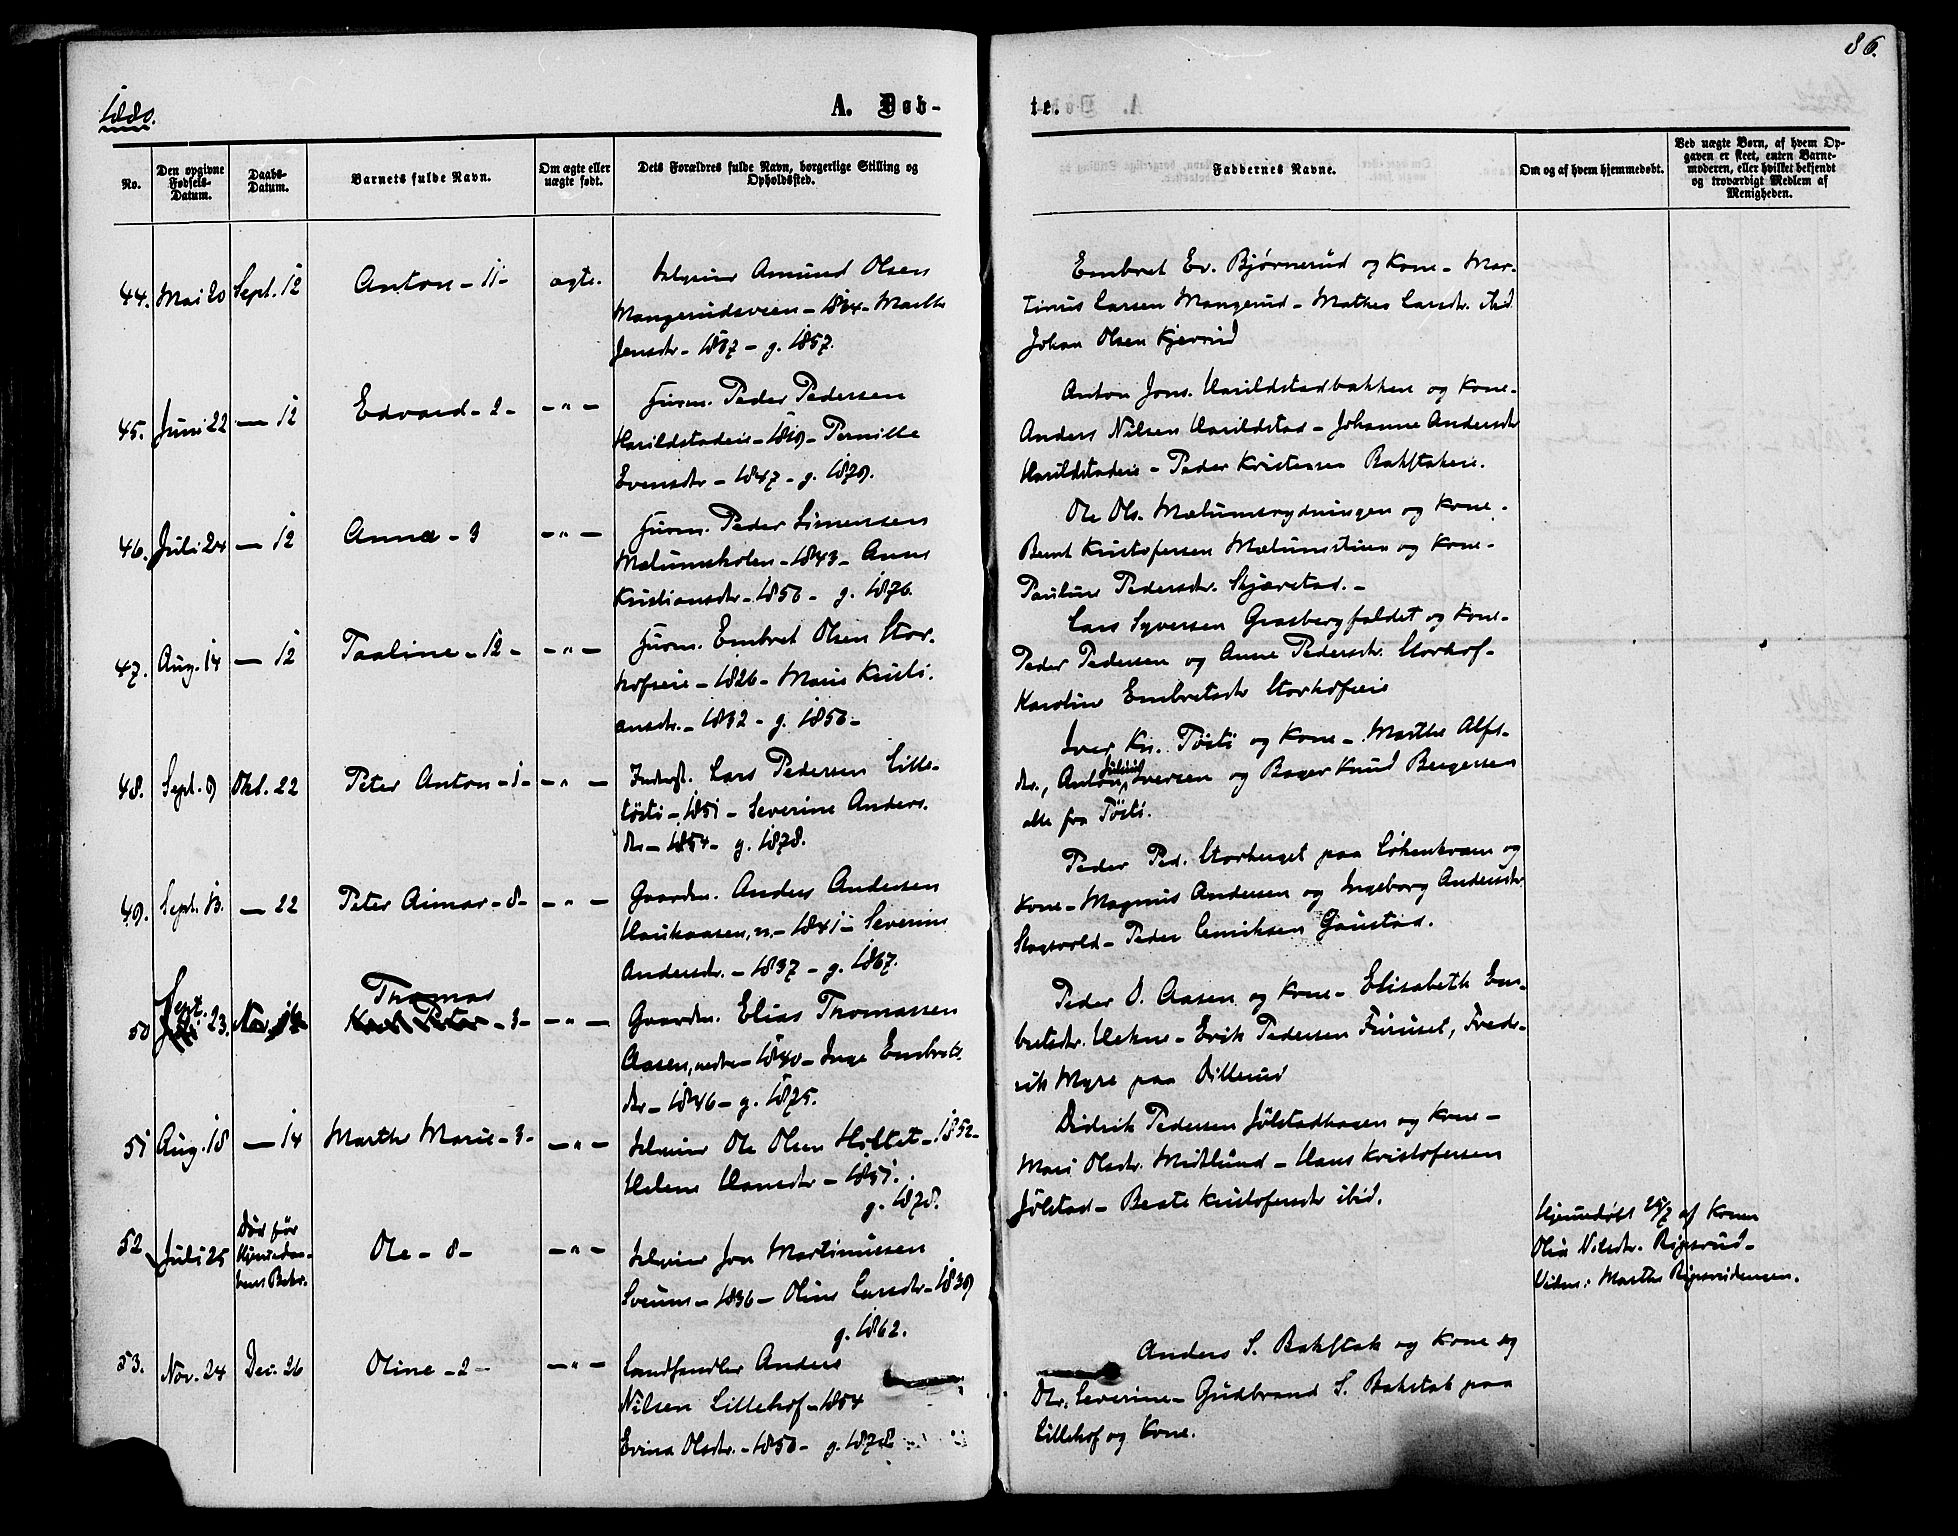 86.
1880.
A. Døb-
te.
No.
Den opgivne Fødsels-Datum.
Daabs-Datum.
Barnets fulde Navn.
Om ægte eller uægte født.
Dets Forældres fulde Navn, borgerlige Stilling og Opholdssted.
Faddernes Navne.
Om og af hvem hjemmedøbt.
Ved uægte Børn, af hvem Op-
gaven er skeet, enten Barne-
moderen, eller hvilket bekjendt
og troværdigt Medlem af
Menigheden.
44. Mai 20 Sept. 12 Anton - 11 - ægte.
Selveier Amund Olsen
Mangerudsveen - 1834 - Marthe
Jensdtr - 1837 - g. 1857.
Embret Ev. Bjørnerud og Kone - Mar-
tinus Larsen Mangerud - Mathea Larsdtr. ibid
Johan Olsen Kjeverud
45. Juni 22 — 12 Edvard - 2 - - " -
Husm. Peder Pedersen
Harildstadeie - 1849 - Pernille
Evensdtr - 1847 - g. 1879.
Anton Jons. Harildstadbakken og Kone -
Anders Nilsen Harildstad - Johanne Andersdtr
Harildstadeie - Peder Kristensen Bakstakeie.
46. Juli 24 — 12 Anna - 3 - " -
Husm. Peder Simensen
Mælumsholen - 1843 - Anne
Kristiansdtr - 1850 - g. 1876.
Ole Ols. Mælumsrydningen og Kone -
Bernt Kristofersen Mælumstuen og Kone -
Pauline Pedersdtr. Skjærstad. -
47. Aug. 14 — 12 Taaline - 12 - - " -
Husm. Embret Olsen Stor-
hofseie - 1826 - Marie Kristi-
ansdtr. - 1832 - g. 1850 -
Lars Syversen Grasbergfaldet og Kone -
Peder Pedersen og Anne Pedersdtr. Storhof -
Karoline Embretsdtr Storhofeie
48. Sept. 9 Okt. 22 Peter Anton - 1 - - " -
Inderst. Lars Pedersen Lille-
tøsti - 1851 - Severine Anders-
dtr - 1854 - g. 1878.
Iver Kr. Tøsti og Kone - Marthe Alfs-
dtr., Anton Julius Iversen og Bager Knud Bergersen
alle fra Tøsti.
49. Sept. 13. — 22 Peter Aimar - 8 - - " -
Gaardm. Anders Andersen
Haukaasen, n. - 1841 - Severine
Andersdtr. - 1837 - g. 1867.
Peder Ped. Storhuget paa Løkenkroen og
Kone - Magnus Andersen og Ingeborg Andersdtr
Skogsvold - Peder Henriksen Gaustad.
50 Sept. 23. Thomas - 3 - - " -
Gaardm. Elias Thomassen
Aasen, nedre - 1840 - Inge Embrets-
dtr - 1846 - g. 1875.
Peder O. Aasen og Kone - Elisabeth Em-
bretsdtr. Hekne - Erik Pedersen Furuset, Fred-
rik Myre paa Dillerud
51 Aug. 18 — 14 Marthe Marie - 3 - - " -
Selveier Ole Olsen Hiltet - 1852 -
Helene Hansdtr - 1851.
g. 1878.
Didrik Pedersen Jølstadhagen og Kone -
Mari Olsdtr. Midtlund - Hans Kristofersen
Jølstad - Beate Kristofersdtr ibid.
52 Juli 25 Død før
Hjemmedaa-
bens Bekr. Ole - 8 - - " -
Selveier Jon Martinussen
Sveum - 1836 - Oline Larsdtr - 1839
g. 1862.
Hjemmedøbt 25/7 af Konen
Olea Nilsdtr. Ripsrud -
Vidne: Marthe Ripsrudensen.
53. Nov. 24 Dec. 26 Oline - 2 - - " -
Landhandler Anders
Nilsen Lillehof - 1854
Evina Olsdtr. - 1850 - g. 1878
Anders S. Bakstak og Kone og
Dtr. Severine - Gudbrand S. Bakstak paa
Lillehof og Kone.